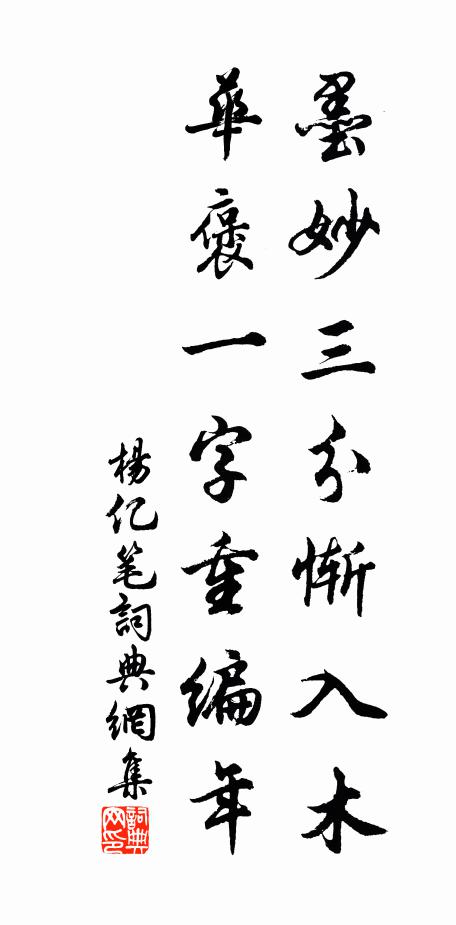 墨妙三分慚入木
華褒一字重編年
楊亿笔詞典網集
詞典
网印